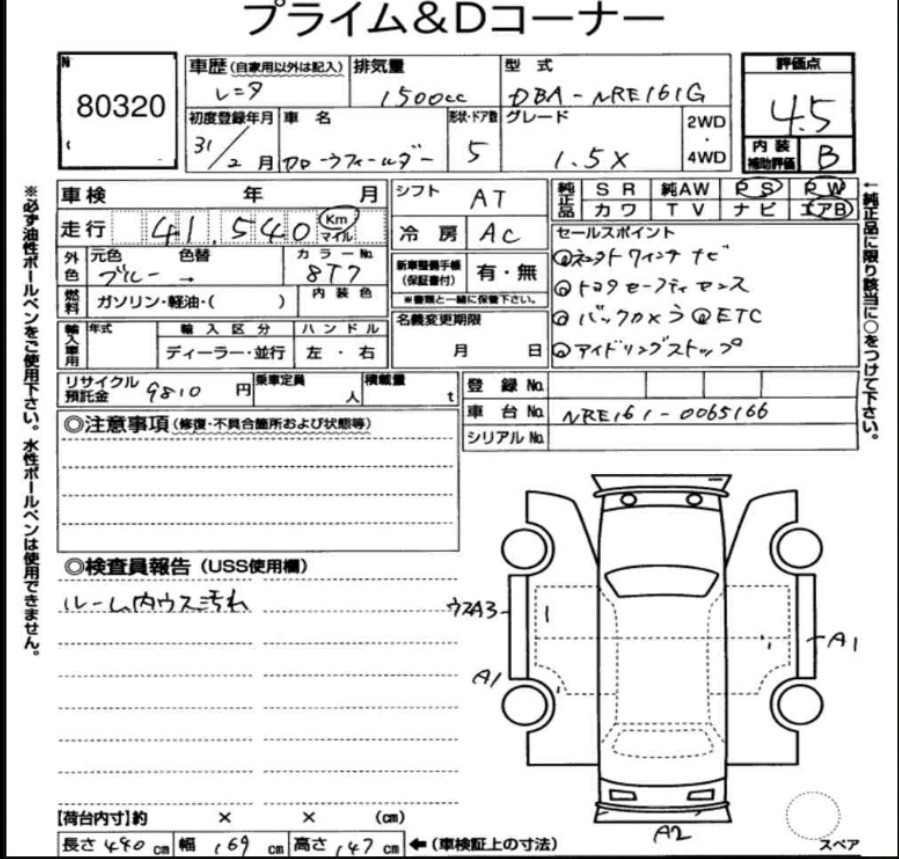 プライム&Dコーナー
No
80320
車歴 (自家用以外は記入) 排気量 型式
レンタ 1500cc DBA-NRE161G
初度登録年月 車名 形状・ドア数 グレード 2WD・4WD
31/2月 カローラフィールダー 5 1.5X
評価点
4.5
内装補助評価 B
車検 年 月
走行 41,540 Km マイル
外色 元色 色替 カラーNo.
ブルー → 8T7
燃料 ガソリン・軽油・( ) 内装色
輸入車用 年式 輸入区分 ハンドル
ディーラー・並行 左・右
シフト AT
冷房 AC
新車整備手帳(保証書付) 有・無
※書類と一緒に保管下さい。
名義変更期限
月 日
純正品 SR 純AW PS PW
カワ TV ナビ エアB
セールスポイント
◎ネット ワイヤレス ナビ
◎トヨタセーフティセンス
◎バックカメラ ◎ETC
◎アイドリングストップ
←純正品に限り該当に○をつけて下さい。
※必ず油性ボールペンをご使用下さい。水性ボールペンは使用できません。
リサイクル預託金 9810 円 乗車定員 人 積載量 t
登録No.
車台No. NRE161-0065166
シリアルNo.
◎注意事項 (修復・不具合箇所および状態等)
◎検査員報告 (USS使用欄)
ルーム内ウス汚れ
ウスA3
A1
A1
A2
スペア
【荷台内寸】約 × × (cm)
長さ 440 cm 幅 169 cm 高さ 147 cm ←(車検証上の寸法)